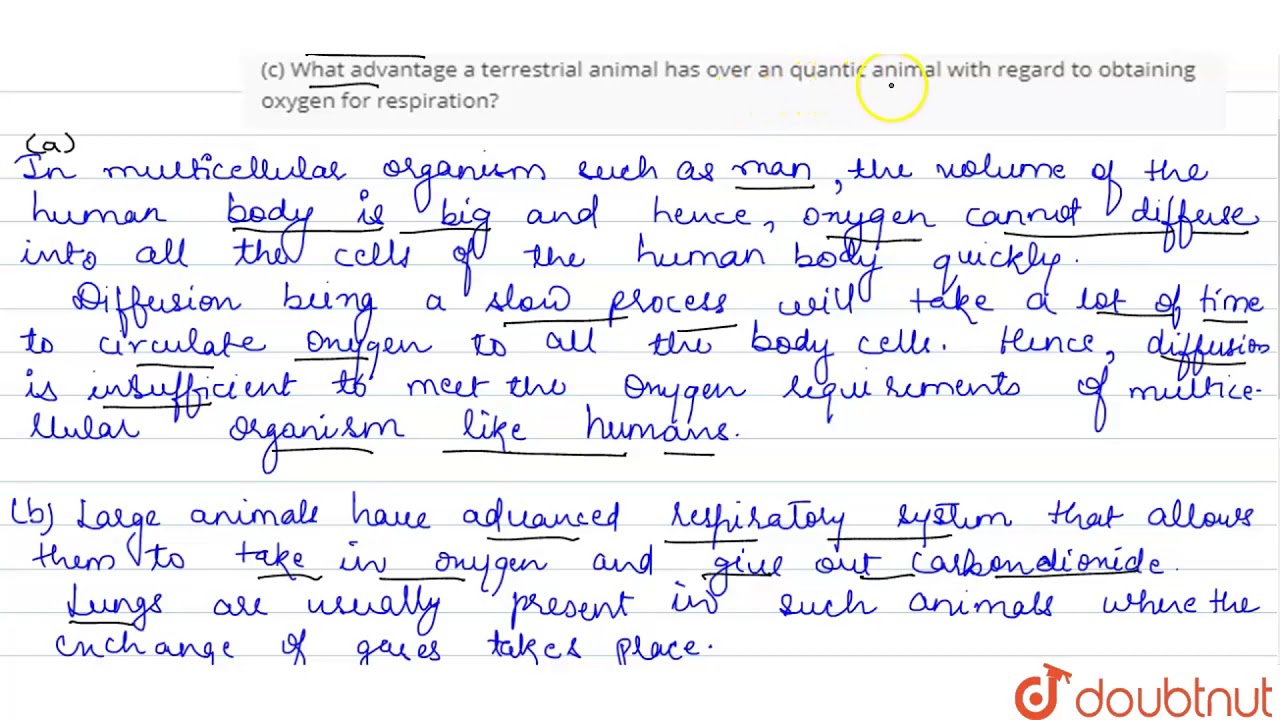 (c) What advantage a terrestrial animal has over an quantic animal with regard to obtaining
oxygen for respiration?
(a)
In multicellular organism such as man, the volume of the
human body is big and hence, oxygen cannot diffuse
into all the cells of the human body quickly.
Diffusion being a slow process will take a lot of time
to circulate oxygen to all the body cells. Hence, diffusion
is insufficient to meet the oxygen requirements of multice-
llular organism like humans.
(b) Large animals have advanced respiratory system that allows
them to take in oxygen and give out carbondioxide.
Lungs are usually present in such animals where the
exchange of gases takes place.
doubtnut